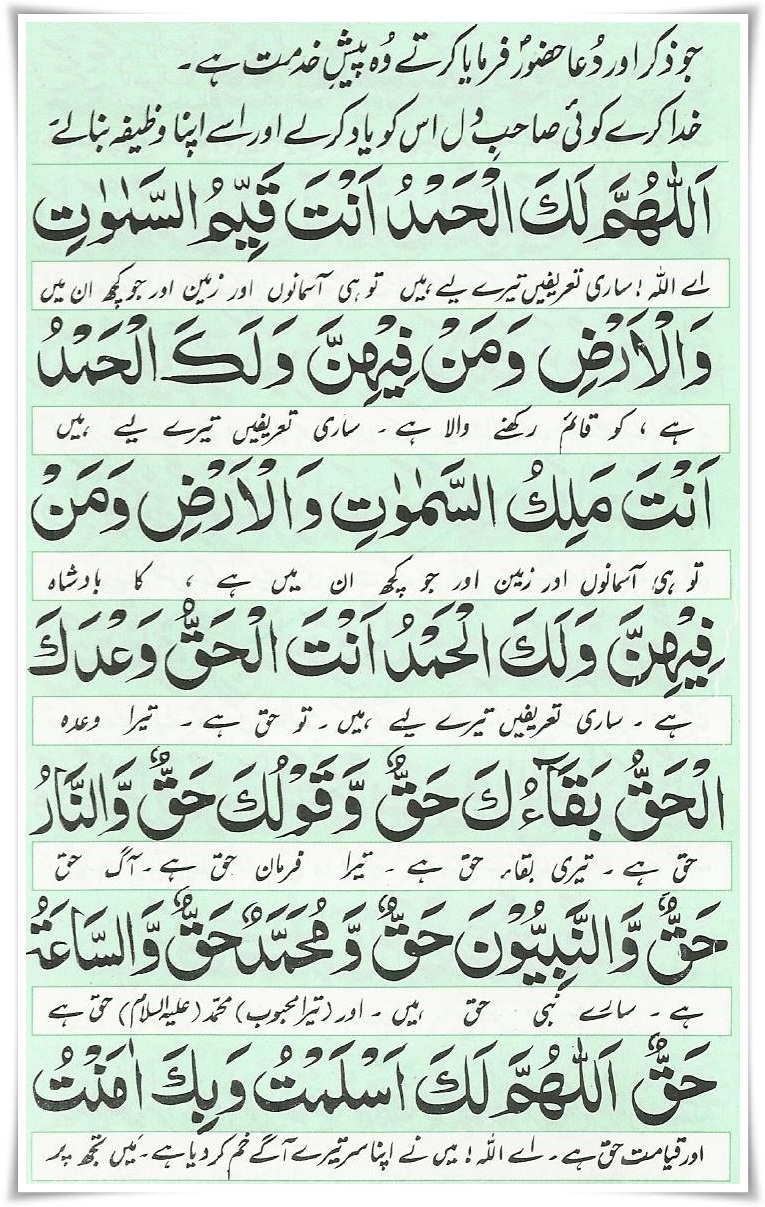 جو ذکر اور دُعا حضورؐ فرمایا کرتے وُہ پیشِ خدمت ہے۔
خدا کرے کوئی صاحبِ دل اس کو یاد کر لے اور اسے اپنا وظیفہ بنا لے۔
اَللّٰهُمَّ لَكَ الْحَمْدُ اَنْتَ قَيِّمُ السَّمٰوٰتِ
اے اللہ! ساری تعریفیں تیرے لیے ہیں تو ہی آسمانوں اور زمین اور جو کچھ ان میں
وَالْاَرْضِ وَمَنْ فِيْهِنَّ وَلَكَ الْحَمْدُ
ہے، کو قائم رکھنے والا ہے۔ ساری تعریفیں تیرے لیے ہیں
اَنْتَ مَلِكُ السَّمٰوٰتِ وَالْاَرْضِ وَمَنْ
تو ہی آسمانوں اور زمین اور جو کچھ ان میں ہے، کا بادشاہ
فِيْهِنَّ وَلَكَ الْحَمْدُ اَنْتَ الْحَقُّ وَعْدَكَ
ہے۔ ساری تعریفیں تیرے لیے ہیں۔ تو حق ہے۔ تیرا وعدہ
الْحَقُّ بَقَآءُكَ حَقٌّ وَّقَوْلُكَ حَقٌّ وَّالنَّارُ
حق ہے۔ تیری بقاء حق ہے۔ تیرا فرمان حق ہے۔ آگ حق
حَقٌّ وَّالنَّبِيُّوْنَ حَقٌّ وَّمُحَمَّدٌ حَقٌّ وَّالسَّاعَةُ
ہے۔ سارے نبی حق ہیں۔ اور (تیرا محبوب) محمد (علیہ السلام) حق ہے
حَقٌّ اَللّٰهُمَّ لَكَ اَسْلَمْتُ وَبِكَ اٰمَنْتُ
اور قیامت حق ہے۔ اے اللہ! میں نے اپنا سر تیرے آگے خم کر دیا ہے۔ میں تجھ پر